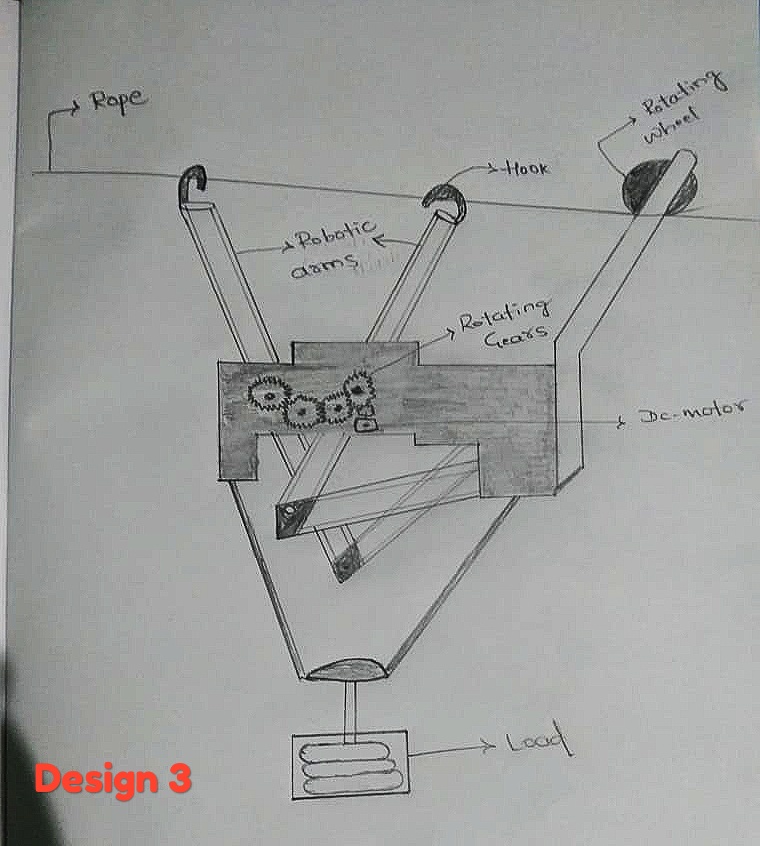 Rope
Rotating
wheel
Hook
Robotic
arms
Rotating
Gears
Dc-motor
Load
Design 3